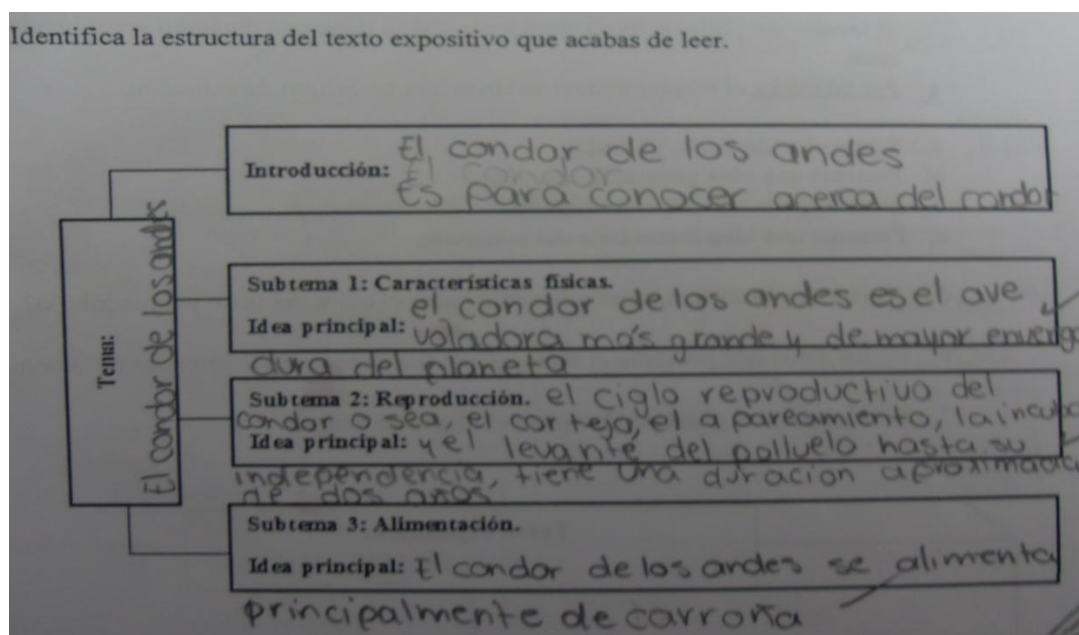 Identifica la estructura del texto expositivo que acabas de leer.
Introducción: El condor de los andes
Es para conocer acerca del condor
Tema: El condor de los andes
Subtema 1: Características físicas.
el condor de los andes es el ave
Idea principal: voladora más grande y de mayor enverga
dura del planeta
Subtema 2: Reproducción. el ciglo reproductivo del
condor o sea, el cortejo, el apareamiento, la incuba
Idea principal: y el levante del polluelo hasta su
independencia, tiene una duracion aproximada
de dos años
Subtema 3: Alimentación.
Idea principal: El condor de los andes se alimenta
principalmente de carroña